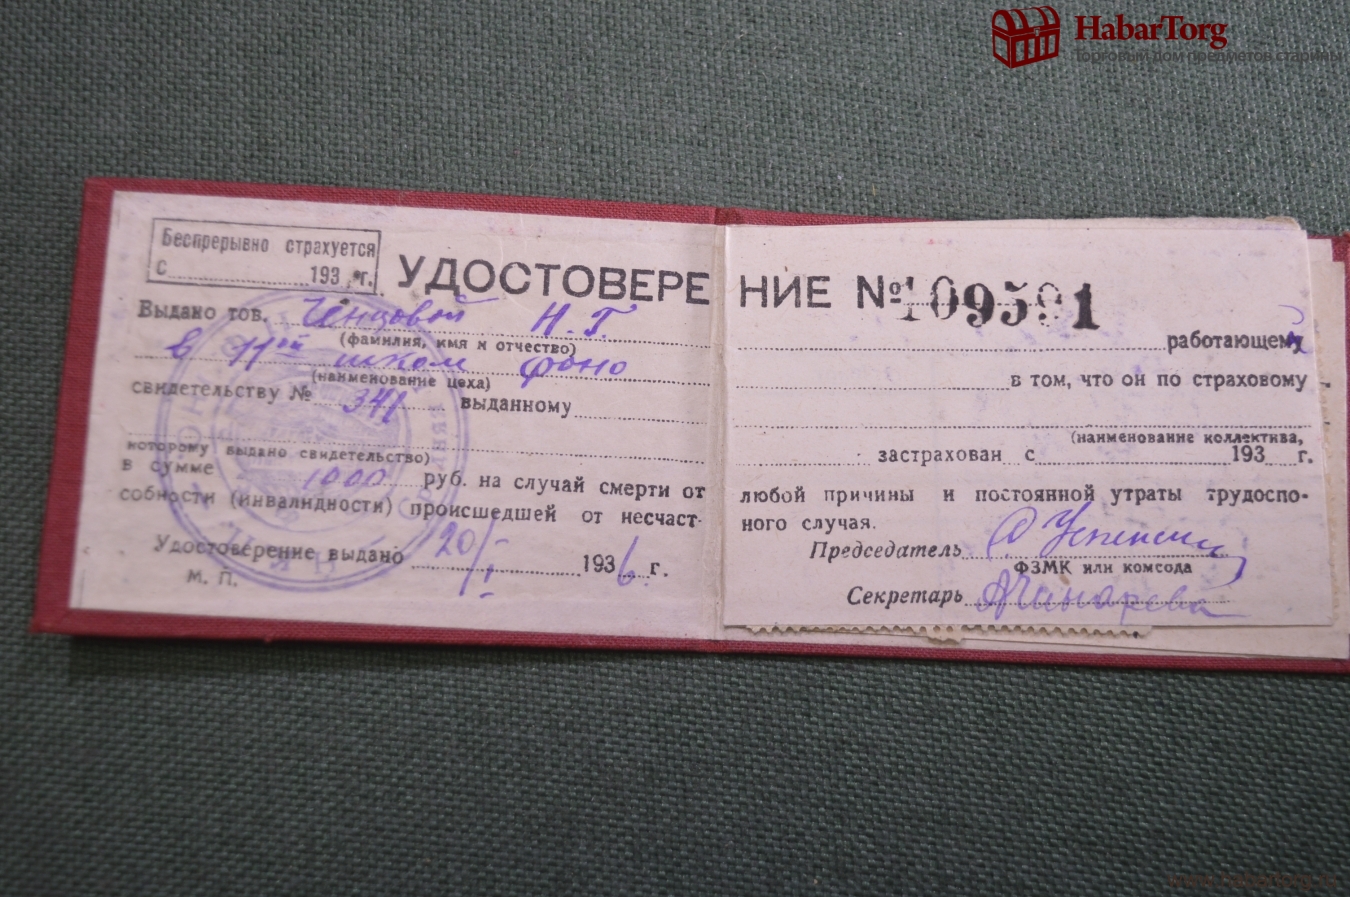 HabarTorg
торговый дом предметов старины
Беспрерывно страхуется
с 193 г.
УДОСТОВЕРЕНИЕ № 109591
Выдано тов. Ченцовой Н. Г. работающему
(фамилия, имя и отчество)
в 11ой школ фоно в том, что он по страховому
(наименование цеха)
свидетельству № 341 выданному
(наименование коллектива,
которому выдано свидетельство) застрахован с 193 г.
в сумме 1000 руб. на случай смерти от любой причины и постоянной утраты трудоспо-
собности (инвалидности) происшедшей от несчаст- ного случая.
Председатель Успенский
Удостоверение выдано 20/I 1936 г. ФЗМК или комсода
М. П. Секретарь